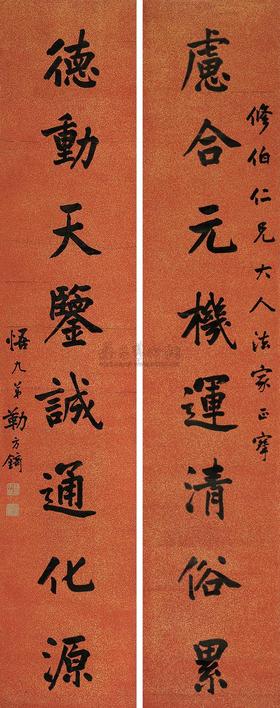 修伯仁兄大人法家正穿
慮合元機運清俗累
德動天鑒誠通化源
悟九弟勒方錡